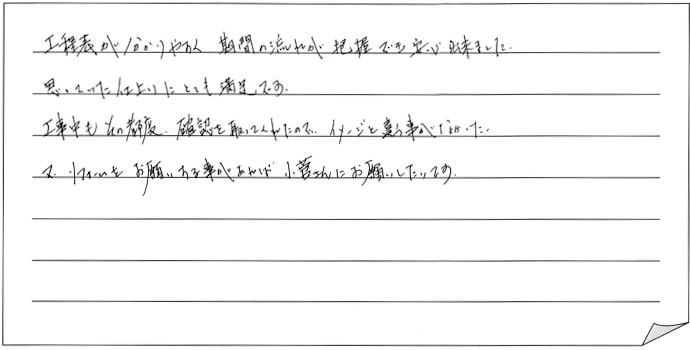 工程表が分かりやすく期間の流れが把握でき安心出来ました。
思っていた仕上りにとても満足です。
工事中もその都度、確認を取ってくれたので、イメージと違う事がなかった。
又、リフォームをお願いする事があれば小菅さんにお願いしたいです。